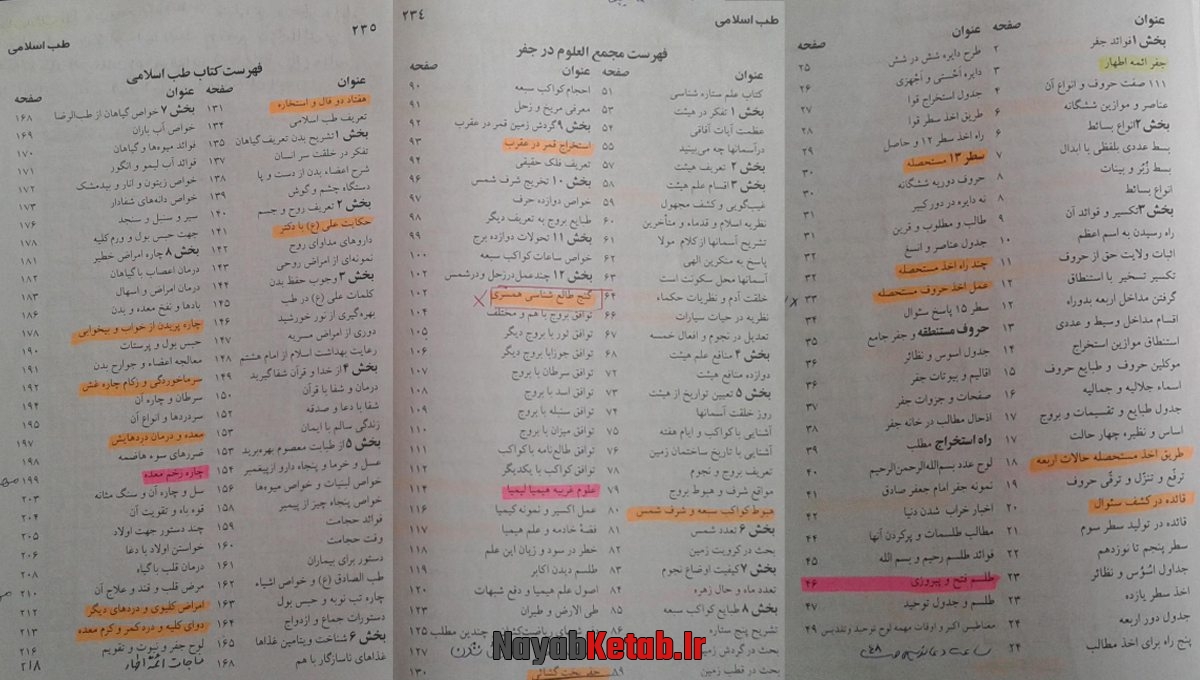 عنوان صفحه
بخش ۱ فوائد جفر ۲
جفر ائمه اطهار ۳
۱۱۱ صفت حروف و انواع آن ۴
عناصر و موازین ششگانه ۶
بخش ۲ انواع بسائط ۶
بسط عددی بلفظی با ابدال ۷
بسط زُبُر و بینات ۸
انواع بسائط ۸
بخش ۳ تکسیر و فوائد آن ۹
راه رسیدن به اسم اعظم ۱۰
اثبات ولایت حق از حروف ۱۱
تکسیر تسخیر با استنطاق ۱۲
گرفتن مداخل اربعه بدوراه
اقسام مداخل وسیط و عددی ۱۳
استنطاق موازین استخراج ۱۴
موکلین حروف و طبایع حروف ۱۵
اسماء جلالیه و جمالیه ۱۶
جدول طبایع و تقسیمات و بروج
اساس و نظیره چهار حالت ۱۷
طریق اخذ مستحصله حالات اربعه ۱۸
ترفع و تنزّل و ترقّی حروف ۱۹
قائده در کشف سئوال ۲۰
قائده در تولید سطر سوم ۲۱
سطر پنجم تا نوزدهم ۲۲
جداول اسُوس و نظائر ۲۳
اخذ سطر یازده ۲۳
جدول دور اربعه
پنج راه برای اخذ مطالب ۲۴
عنوان صفحه
طرح دایره شش در شش ۲۵
دایره أحَستی و أجهَزی ۲۶
جدول استخراج قوا ۲۷
طریق اخذ سطر قوا ۲۸
راه اخذ سطر ۱۲ و حاصل ۲۹
سطر ۱۳ مستحصله ۳۰
حروف دوریه ششگانه ۳۰
نه دایره در دور کبیر ۳۱
طالب و مطلوب و قرین ۳۱
جدول عناصر و انسغ ۳۲
چند راه اخذ مستحصله ۳۲
عمل اخذ حروف مستحصله ۳۳
سطر ۱۵ پاسخ سئوال ۳۴
حروف مستنطقه و جفر جامع ۳۵
جدول اسوس و نظائر ۳۶
اقالیم و بیوتات جفر ۳۶
صفحات و جزوات جفر ۳۷
ادخال مطالب در خانه جفر ۳۸
راه استخراج مطلب ۳۹
لوح عدد بسم‌الله‌الرحمن‌الرحیم ۴۰
نمونه جفر امام جعفر صادق ۴۱
اخبار خراب شدن دنیا ۴۲
مطالب طلسمات و پرکردن آنها ۴۴
فوائد طلسم رحیم و بسم الله ۴۵
طلسم فتح و پیروزی ۴۶
طلسم و جدول توحید ۴۷
مغناطیس اکبر و اوقات مهمه لوح توحید و تقدیس ۴۹
طب اسلامی
۲۳۴
فهرست مجمع العلوم در جفر
عنوان صفحه
کتاب علم ستاره شناسی ۵۱
بخش ۱ تفکر در هیئت ۵۳
عظمت آیات آفاقی ۵۴
درآسمانها چه می‌بینید ۵۵
بخش ۲ تعریف هیئت ۵۷
بخش ۳ اقسام علم هیئت ۵۸
غیب‌گویی و کشف مجهول ۵۹
نظریه اسلام و قدماء و متأخرین ۶۰
تشریح آسمانها از کلام مولا ۶۱
پاسخ به منکرین الهی ۶۲
آسمانها محل سکونت است ۶۳
خلقت آدم و نظریات حکماء ۶۴
نظریه در حیات سیارات ۶۶
تعدیل در نجوم و افعال خمسه ۶۷
بخش ۴ منافع علم هیئت ۶۸
دوازده منافع هیئت ۷۲
بخش ۵ تعیین تواریخ از هیئت ۷۳
روز خلقت آسمانها ۷۴
آشنایی با کواکب و ایام هفته ۷۵
آشنایی با تاریخ ساختمان زمین ۷۶
تعریف بروج و نجوم ۷۸
مواقع شرف و هبوط بروج ۷۹
هبوط کواکب سبعه و شرف شمس ۸۰
بخش ۶ تعدد شمس ۸۱
بحث در کرویت زمین ۸۲
بخش ۷ کیفیت اوضاع نجوم ۸۳
تعدد ماه و حال زهره ۸۴
بخش ۸ طبایع کواکب سبعه ۸۵
تشریح پنج ستاره ۸۶
بحث در گردش زمین
بحث در قطب زمین ۸۹
عنوان صفحه
احجام کواکب سبعه ۹۰
معرفی مریخ و زحل ۹۱
بخش ۹ گردش زمین قمر در عقرب ۹۲
استخراج قمر در عقرب ۹۳
تعریف فلک حقیقی ۹۴
بخش ۱۰ تخریج شرف شمس ۹۶
خواص دوازده حرف ۹۷
طبایع بروج به تعریف دیگر ۹۸
بخش ۱۱ تحولات دوازده برج ۹۹
خواص ساعات کواکب سبعه ۱۰۰
بخش ۱۲ چندعمل‌درزحل ودرشمس ۱۰۲
گنج طالع شناسی همسری ۱۰۲
توافق بروج با هم و مختلف ۱۰۴
توافق لوز با بروج دیگر ۱۰۵
توافق جوزا با بروج دیگر ۱۰۶
توافق سرطان با بروج ۱۰۷
توافق اسد با بروج ۱۰۸
توافق سنبله با بروج ۱۰۹
توافق میزان با بروج ۱۱۰
توافق طالع‌نامه با کواکب ۱۱۱
توافق کواکب با یکدیگر ۱۱۲
علوم غریبه هیمیا لیمیا ۱۱۴
عمل اکسیر و نمونه کیمیا ۱۱۶
فضهٔ خادمه و علم هیمیا ۱۱۷
خطر در سود و زیان این علم ۱۱۸
طلسم دیدن اکابر ۱۱۹
اصول علم هیمیا و دفع شبهات ۱۲۰
طی الارض و طیران ۱۲۳
چندین مطلب ۱۲۵
۱۲۷
جفر بخت گشائی ۱۳۰
۲۳۵
طب اسلامی
فهرست کتاب طب اسلامی
عنوان صفحه
هفتاد دو فال و استخاره ۱۳۱
تعریف طب اسلامی ۱۳۴
بخش ۱ تشریح بدن تعریف‌گیاهان ۱۳۵
تفکر در خلقت سر انسان ۱۳۷
شرح اعضاء بدن از دست و پا ۱۳۸
دستگاه چشم و گوش ۱۳۹
بخش ۲ تعریف روح و جسم ۱۴۰
حکایت علی (ع) با دکتر ۱۴۱
داروهای مداوای روح ۱۴۲
نمونه‌ای از امراض روحی ۱۴۳
بخش ۳ وجوب حفظ بدن ۱۴۴
کلمات علی (ع) در طب ۱۴۵
بهره‌گیری از نور خورشید ۱۴۶
دوری از امراض مسریه ۱۴۷
رعایت بهداشت اسلام از امام هشتم ۱۴۸
بخش ۴ از خدا و قرآن شفاگیرید ۱۴۹
درمان و شفا با قرآن ۱۵۰
شفا با دعا و صدقه ۱۵۲
زندگی سالم با ایمان ۱۵۳
بخش ۵ از طبابت معصوم بهره‌برید ۱۵۳
عسل و خرما و پنجاه دارو ازپیغمبر ۱۵۴
خواص لبنیات و خواص میوه‌ها ۱۵۶
خواص پنجاه چیز از پیامبر ۱۵۷
فوائد حجامت ۱۵۹
وقت حجامت ۱۶۰
دستور برای بیماران ۱۶۱
طب الصادق (ع) و خواص اشیاء ۱۶۲
چاره تب نوبه و حبس بول ۱۶۳
دستورات جماع و ازدواج ۱۶۴
بخش ۶ شناخت ویتامین غذاها ۱۶۵
غذاهای ناسازگار با هم ۱۶۸
عنوان صفحه
بخش ۷ خواص گیاهان از طب‌الرضا ۱۶۸
خواص آب باران ۱۶۹
فوائد میوه‌ها و گیاهان ۱۷۰
فوائد آب لیمو و انگور ۱۷۱
خواص زیتون و انار و بیدمشک ۱۷۲
خواص دانه‌های شفادار ۱۷۳
سیر و سنبل و سنجد ۱۷۶
جهت حبس بول و ورم کلیه ۱۷۸
بخش ۸ چاره امراض خطیر ۱۸۱
درمان اعصاب با گیاهان ۱۸۲
درمان امراض و اسهال ۱۸۳
بادها و نفخ معده و بدن ۱۸۶
چاره پریدن از خواب و بیخوابی ۱۷۸
حبس بول و پرستات ۱۹۰
معالجه اعضاء و جوارح بدن ۱۹۱
سرماخوردگی و زکام چاره غش ۱۹۲
سرطان و چاره آن ۱۹۴
سردردها و انواع آن ۱۹۵
معده و درمان دردهایش ۱۹۷
ضررهای سوء هاضمه ۱۹۸
چاره زخم معده ۱۹۹
سل و چاره آن و سنگ مثانه ۲۰۳
قوه باه و تقویت آن ۲۰۴
چند دستور جهت اولاد ۲۰۵
خواستن اولاد با دعا ۲۰۶
درمان قلب با گیاه ۲۰۸
مرض قلب و قند و علاج آن ۲۱۰
امراض کلیوی و دردهای دیگر ۲۱۲
دوای کلیه و درد کمر و کرم معده ۲۱۳
لوح جفر و نبوت و تقویم ۲۱۶
مناجات ائمهٔ اطهار ۲۱۸
NayabKetab.Ir